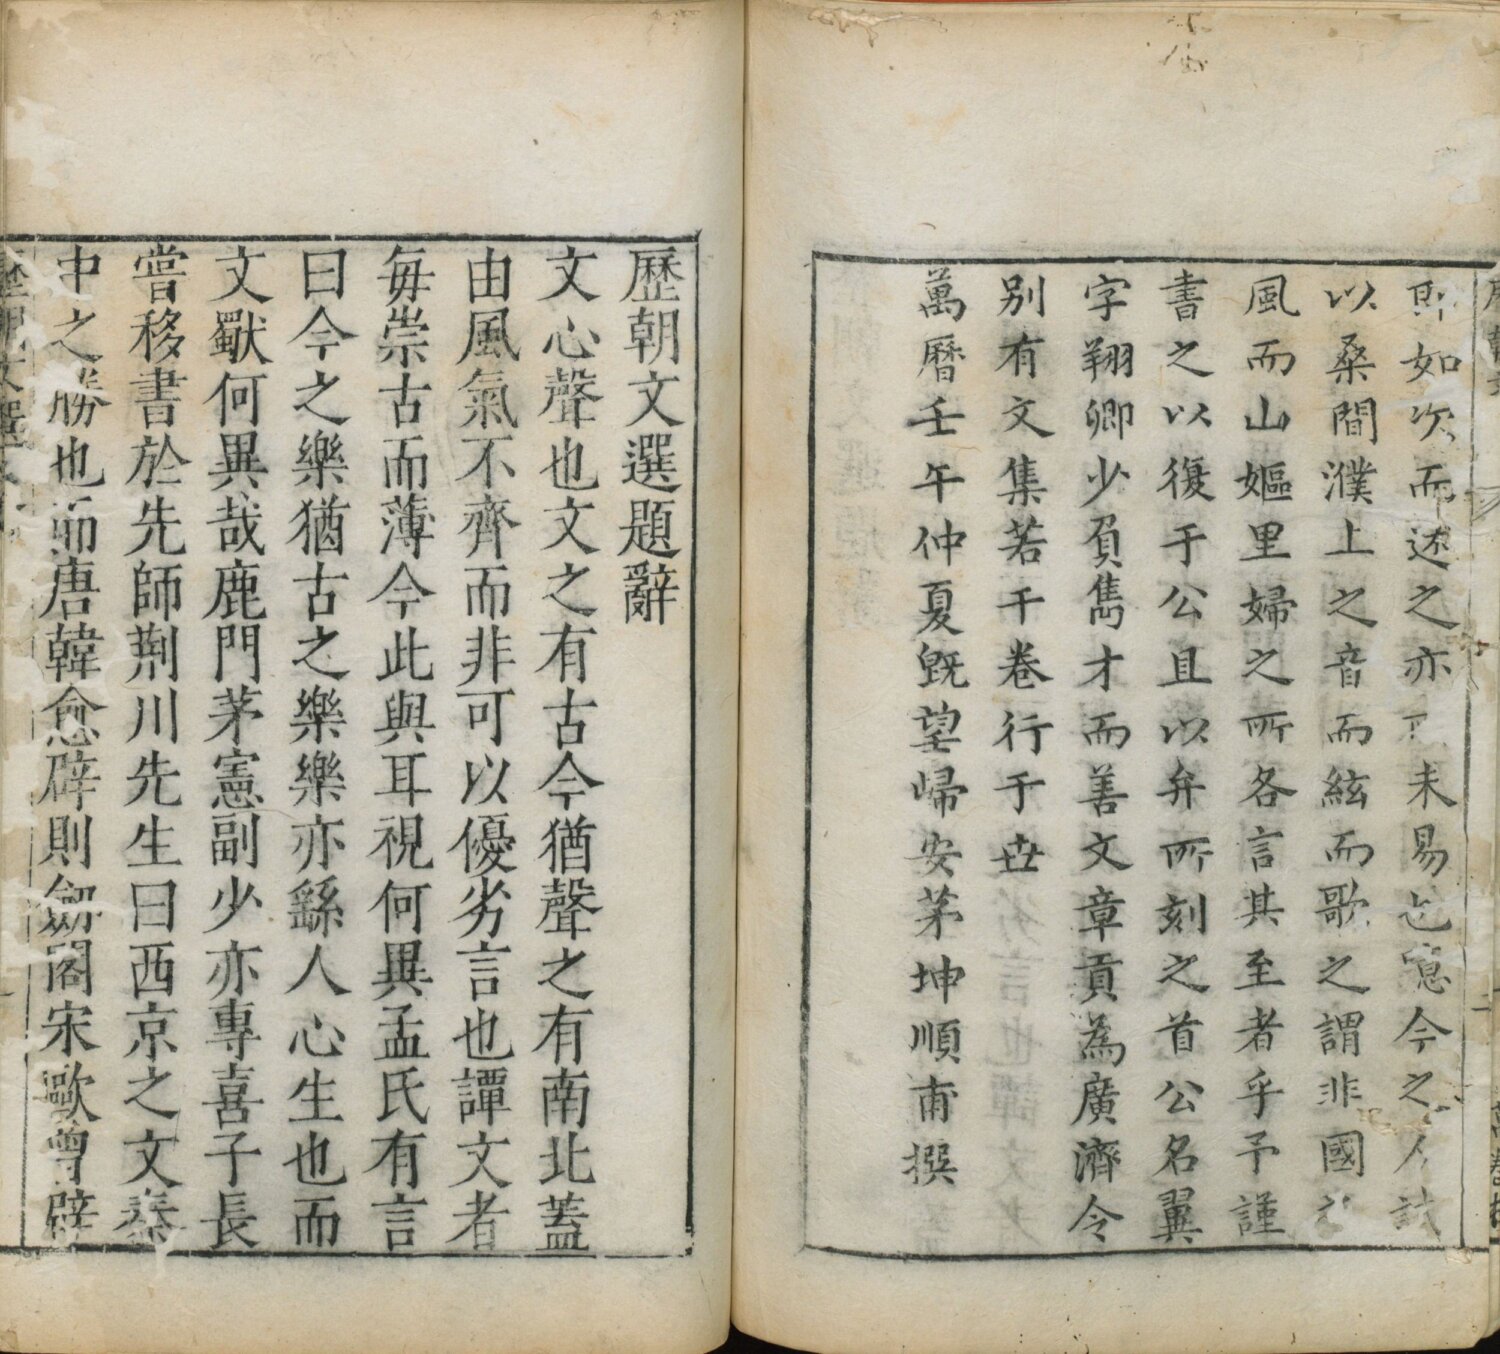 如次而述之亦未易也噫今之人
以桑間濮上之音而絃而歌之謂非國
風而山嫗里婦之所各言其至者乎予謹
書之以復于公且以弁所刻之首公名翼
字翔卿少負雋才而善文章貢為廣濟令
別有文集若干卷行于世
萬曆壬午仲夏既望歸安茅坤順甫撰
歷朝文選題辭
文心聲也文之有古今猶聲之有南北蓋
由風氣不齊而非可以優劣言也譚文者
每崇古而薄今此與耳視何異孟氏有言
曰今之樂猶古之樂樂亦繇人心生也而
文獸何異哉鹿門茅憲副少亦專喜子長
嘗移書於先師荆川先生曰西京之文秦
中之勝也而唐韓愈辟則劒閣宋歐曾辟